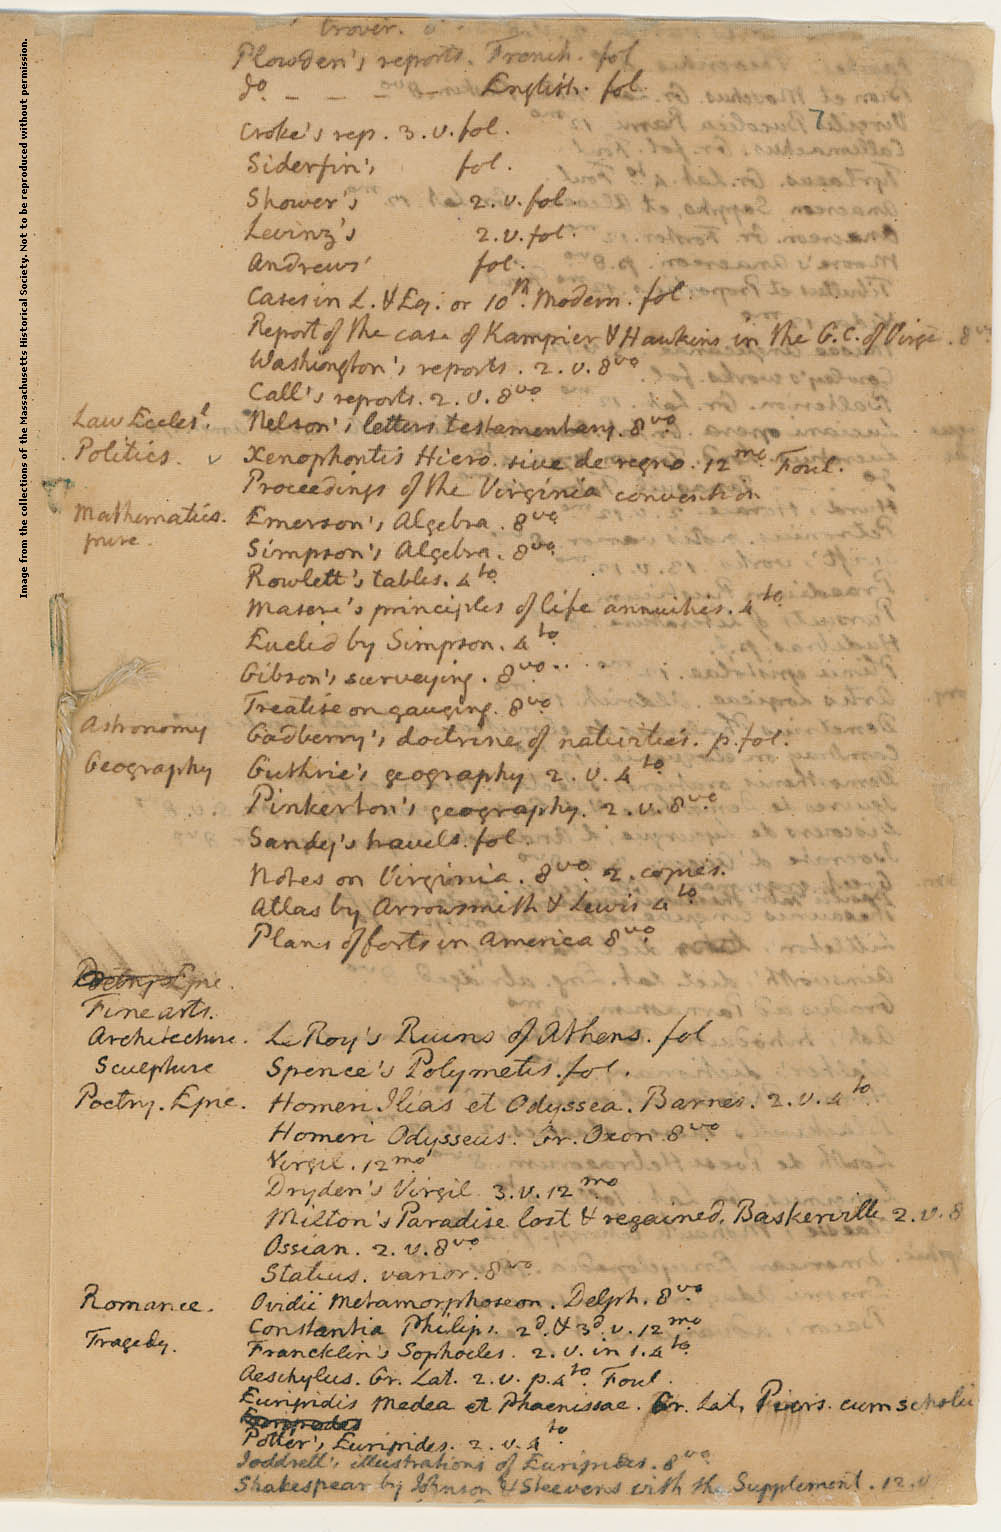 Image from the collections of the Massachusetts Historical Society. Not to be reproduced without permission.
trover.
Plowden's reports. French. fol
do. – – – – English. fol.
7
Croke's rep. 3. v. fol.
Siderfin's fol.
Shower's 2. v. fol.
Levinz's 2. v. fol.
Andrews' fol.
Cases in L. & Eq. or 10th. Modern. fol.
Report of the case of Kampier & Hawkins in the G.C. of Virga. 8vo
Washington's reports. 2. v. 8vo
Call's reports. 2. v. 8vo
Law Ecclest. Nelson's letters testamentary. 8vo
Politics. Xenophontis Hiero. sive de regno. 12mo. Foul.
Proceedings of the Virginia convention
Mathematics. Emerson's Algebra. 8vo
pure. Simpson's Algebra. 8vo
Rowlett's tables. 4to
Masere's principles of life annuities. 4to
Euclid by Simpson. 4to
Gibson's surveying. 8vo
Treatise on gauging. 8vo
Astronomy Gadberry's doctrine of nativities. p. fol.
Geography Guthrie's geography 2. v. 4to
Pinkerton's geography. 2. v. 8vo
Sandy's travels. fol
Notes on Virginia. 8vo. 2. copies.
Atlas by Arrowsmith & Lewis 4to
Plans of forts in America 8vo
Poetry Epic.
Fine arts.
Architecture. Le Roy's Ruins of Athens. fol
Sculpture Spence's Polymetis. fol.
Poetry. Epic. Homeri Ilias et Odyssea. Barnes. 2. v. 4to
Homeri Odysseus. Gr. Oxon 8vo
Virgil. 12mo
Dryden's Virgil 3. v. 12mo
Milton's Paradise lost & regained. Baskerville 2. v. 8
Ossian. 2. v. 8vo
Statius. varior. 8vo
Romance. Ovidii Metamorphoseon. Delph. 8vo
Constantia Philips. 2d. & 3d. v. 12mo
Tragedy. Francklin's Sophocles. 2. v. in 1. 4to
Aeschylus. Gr. Lat. 2. v. p. 4to. Foul.
Euripidis Medea et Phaenissae. Gr. Lat. Piers. cum scholii
Potter's Euripides. 2. v. 4to
Joddrell's illustrations of Euripides. 8vo
Shakespear by Johnson & Steevens with the Supplement. 12. v